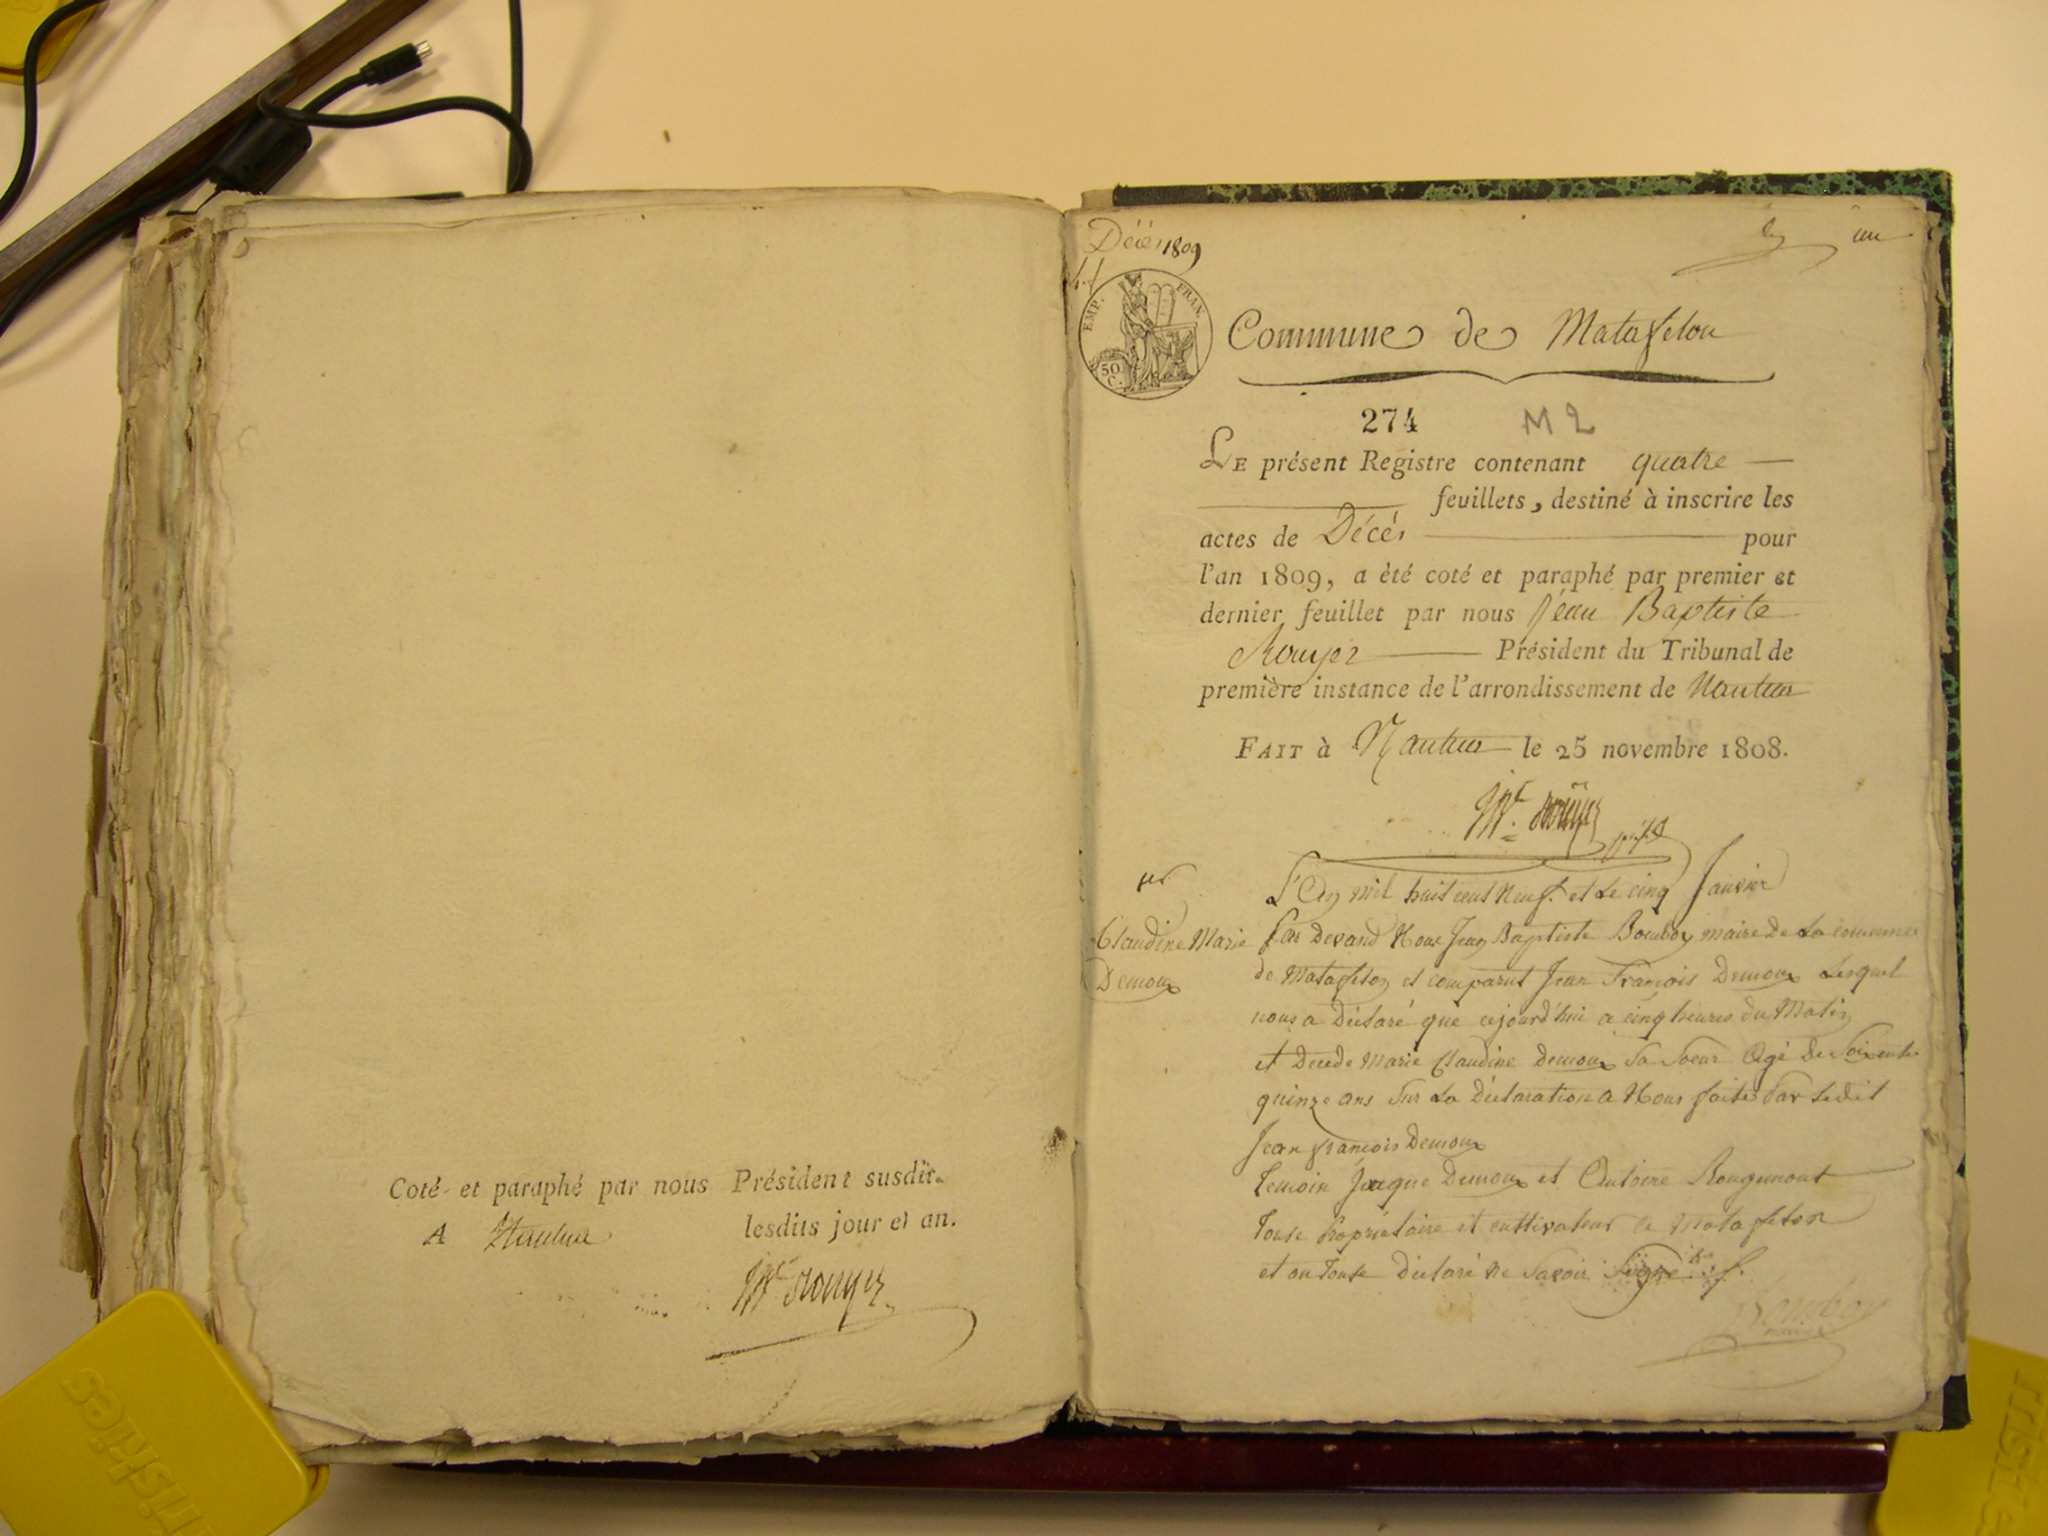 Coté et paraphé par nous Président susdit.
A Nantua lesdits jour et an.
JB.te Rouyer
Décès 1809
un
EMP. FRAN.
50 C.
Commune de Matafelon
274 M 2
LE présent Registre contenant quatre
feuillets, destiné à inscrire les
actes de Décés pour
l'an 1809, a été coté et paraphé par premier et
dernier feuillet par nous Jéan Baptiste
Rouyer Président du Tribunal de
première instance de l'arrondissement de Nantua
FAIT à Nantua le 25 novembre 1808.
JB.te Rouyer
L'An mil huit cent Neuf et Le cinq Janvier
Claudine Marie
Demoux
Par Devand Nous Jean Baptiste Bomboy maire De La commune
de Matafelon et comparut Jean François Demoux Lesquel
nous a Déclaré que cejourd'hui a cinq heures du Matin
et Decede Marie Claudine Demoux Sa Soeur Agé De Soixente
quinze ans Sur La Déclaration a Nous faite Par Ledit
Jean françois Demoux
Temoin Jacque Demoux et Antoine Rougemont
Touse Propriétaire et cultivateur a Matafelon
et on Touse Déclaré ne Savoir Signé
Bomboy
maire
ITISKIES
ITISKIES